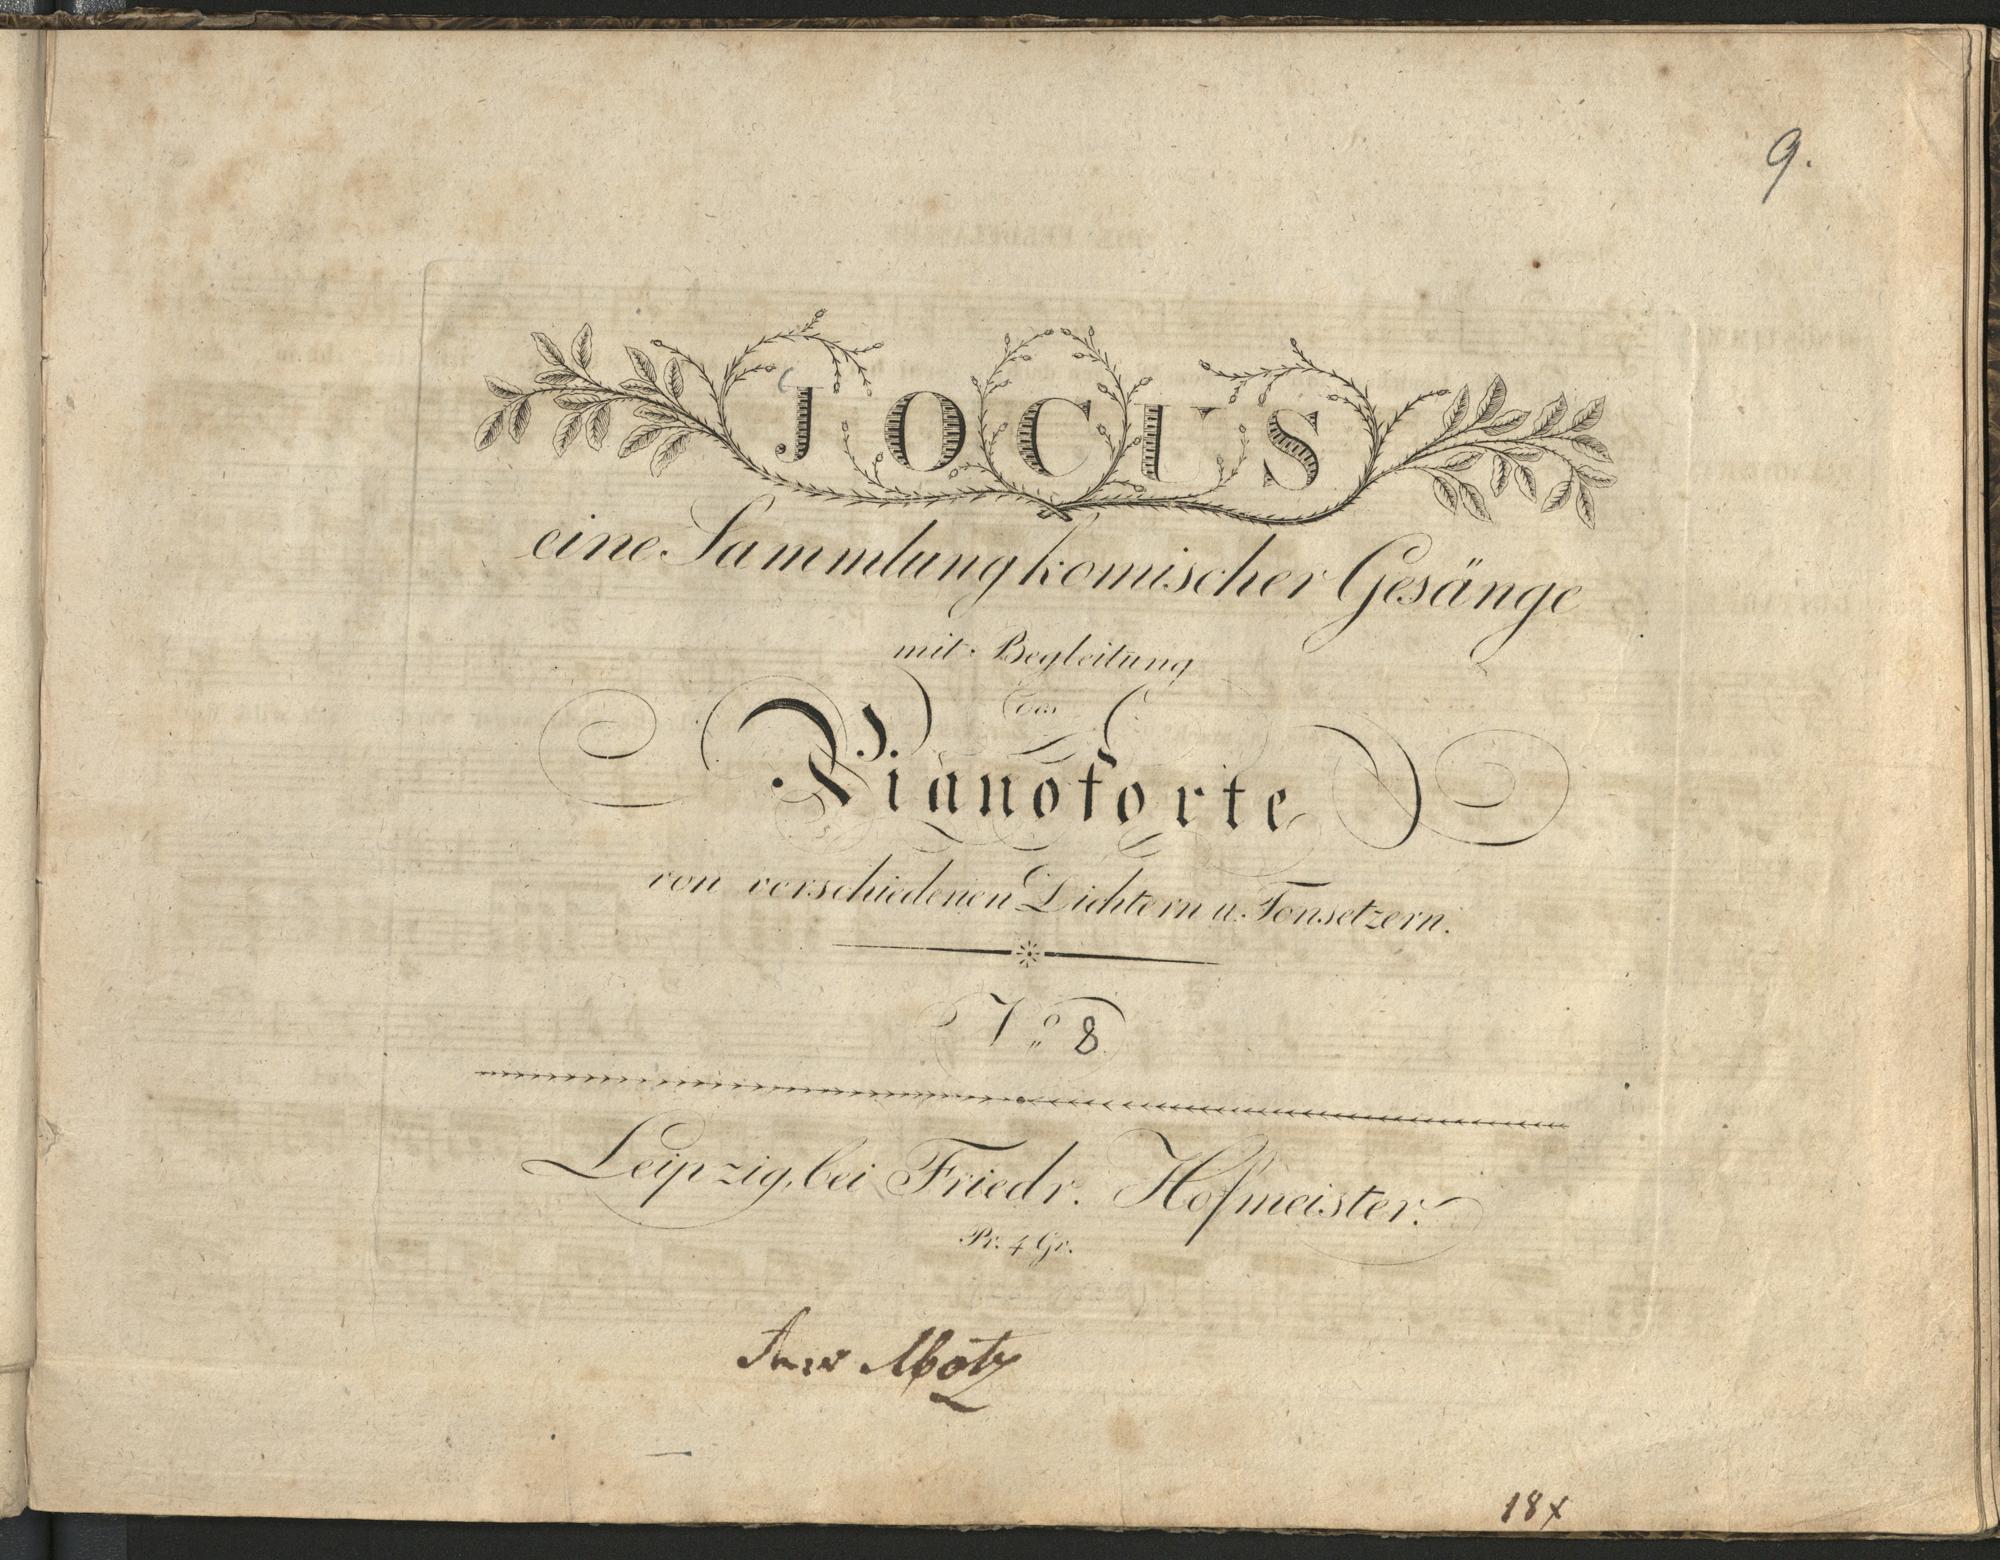 9.
JOCUS
eine Sammlung komischer Gesänge
mit Begleitung
des
Pianoforte
von verschiedenen Dichtern u. Tonsetzern.
No 8
Leipzig, bei Friedr. Hofmeister.
Pr. 4 Gr.
Motz
18x